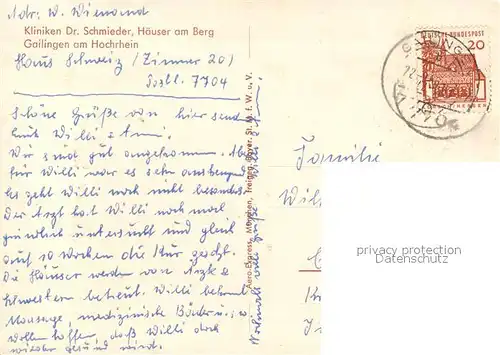 Adr. W. Wienand
Kliniken Dr. Schmieder, Häuser am Berg
Gailingen am Hochrhein
Haus Schweiz (Zimmer 20)
Postl. 7704
Schöne Grüße von hier send
Willi + Anni.
Wir sind gut angekommen. Aber
für Willi war es sehr anstrengend
Es geht Willi noch nicht besonders.
Der Arzt hat Willi noch mal
gründlich untersucht und gleich
auf 10 Wochen die Kur gesetzt.
Die Häuser werden von Ärzte +
Schwestern betreut. Willi bekommt
Massage, medizinische Bäder u.s.w.
Wollen hoffen, daß Willi doch
wieder gesund wird.
Nochmals viele Grüße Willi + Anni
Aero-Express, München, Freigeg. Bayer. St. M. f. W. u. V.
DEUTSCHE BUNDESPOST
20
GAILINGEN
Familie
privacy protection
Datenschutz